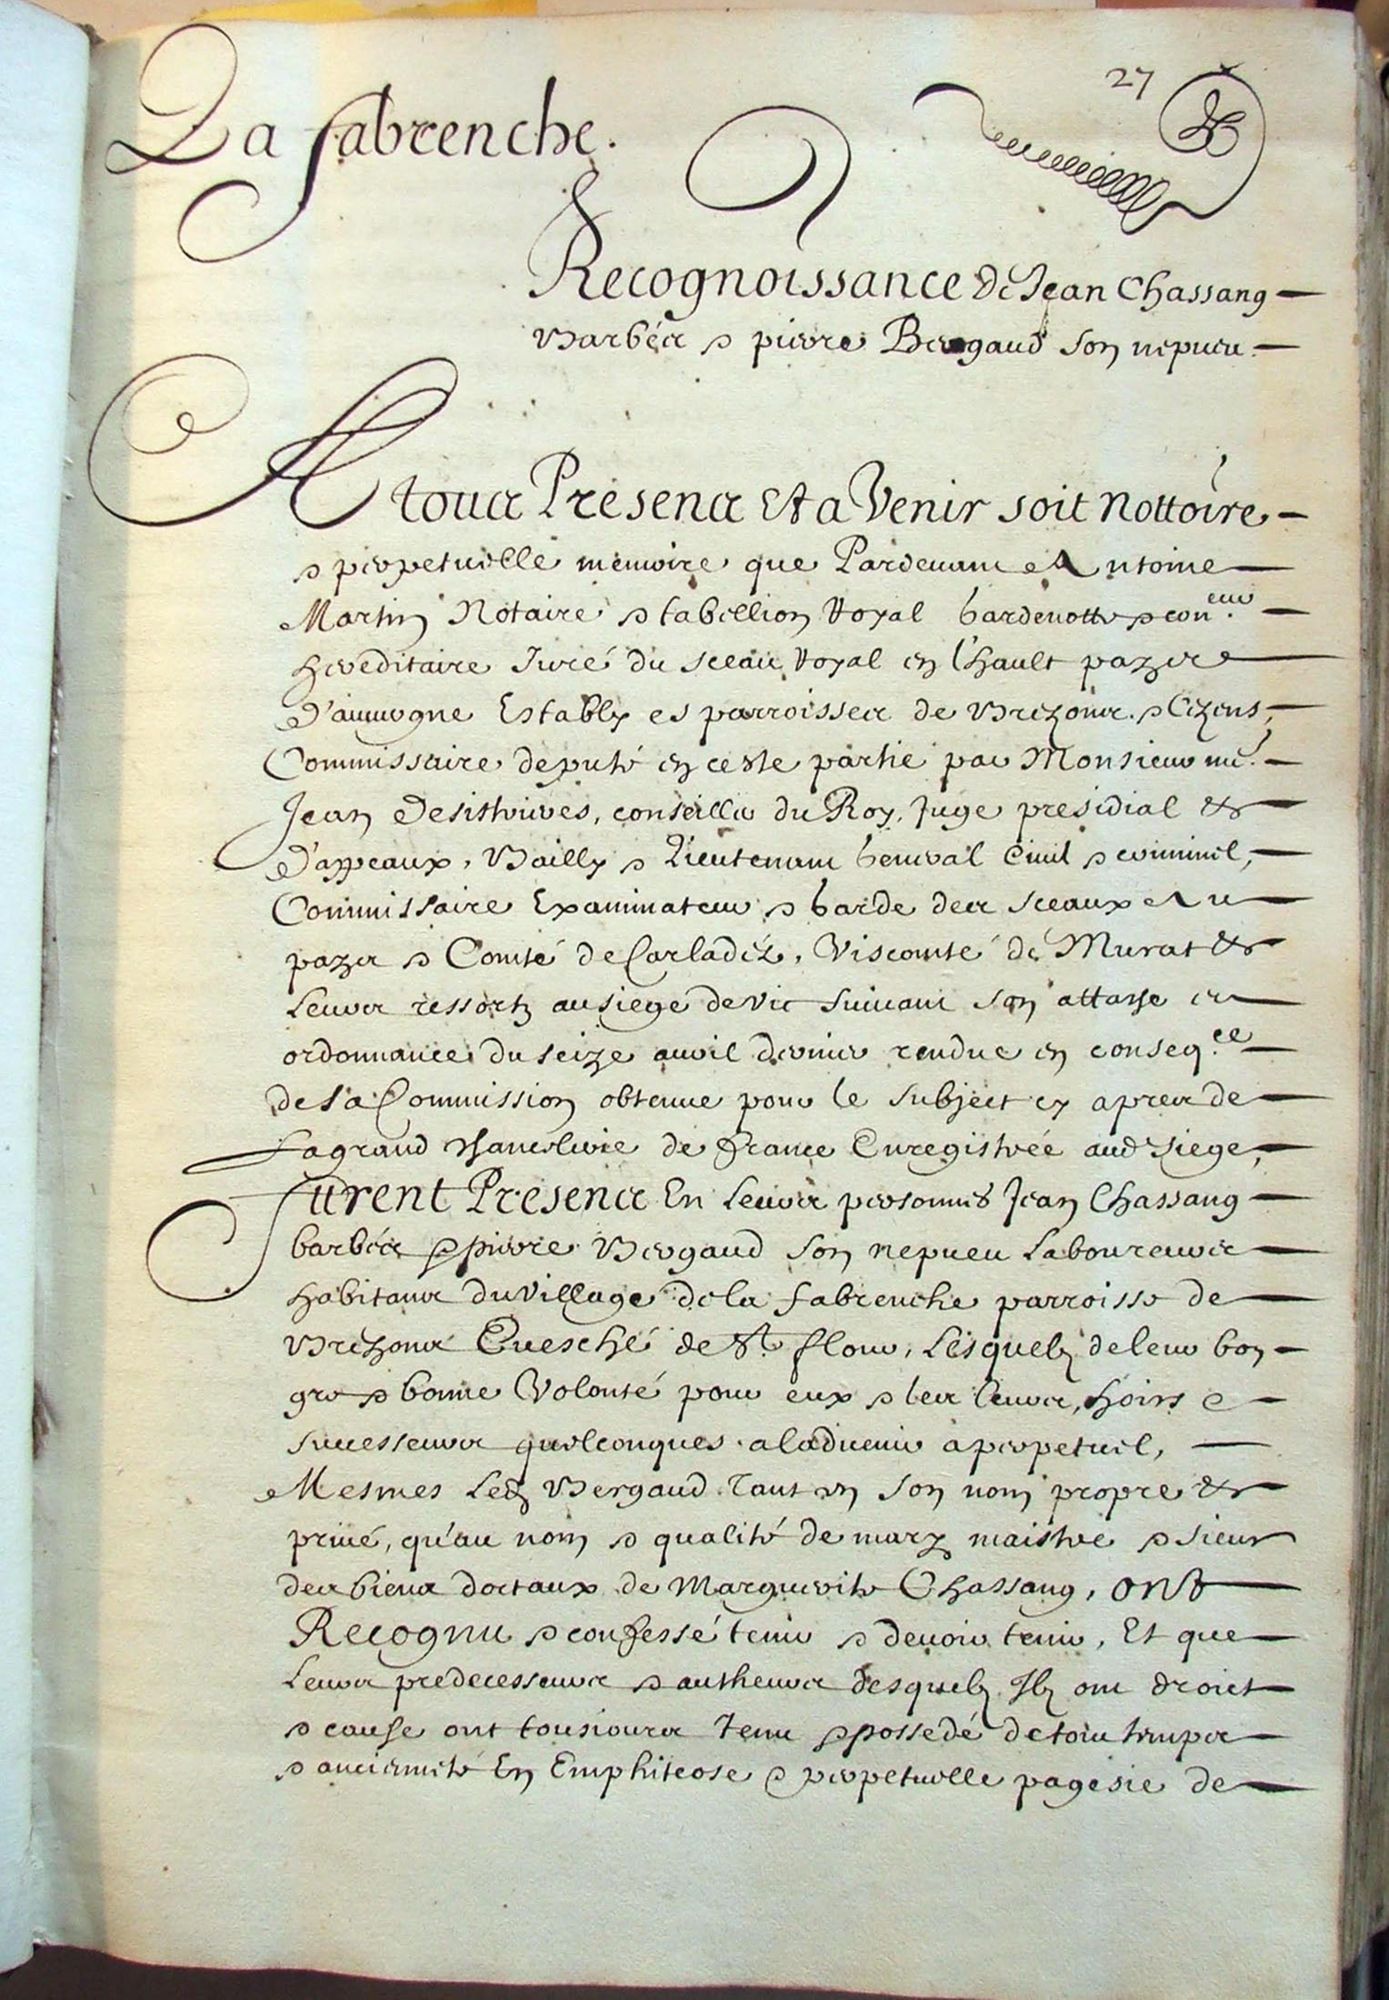 27
La fabrenche.
Recognoissance de Jean Chassang
barbier & pierre Bergaud son nepueu.
A tous Presens Et a Venir soit Nottoire
& perpetuelle memoire que Pardeuant Antoine
Martin Notaire & tabellion Royal Gardenotte &
hereditaire Juré du sceau Royal en l'hault pazes
d'auuergne Estably es parroisses de Brezons. & Cezens,
Commissaire deputé en ceste partie par Monsieur me.
Jean Desistrieres, conseiller du Roy, Juge presidial &
d'appeaux, Bailly & Lieutenant General Ciuil & criminel,
Commissaire Examinateur & Garde des sceaux Au
pazes & Comté de Carladéz, Viscomté de Murat &
Leurs ressortz au siege de Vic suiuant son attache et
ordonnance du seize auril dernier rendue en conseq.ce
de sa Commission obtenue pour le subject cy apres de
La grand Chancelerie de France Enregistrée aud. siege,
furent Presens En Leurs personnes Jean Chassang
barbier & pierre Bergaud son nepueu Laboureurs
habitans du Village de la fabrenche parroisse de
Brezons Euesché de St. flour, Lesquelz de leur bon
gre & bonne Volonté pour eux & les leurs, hoirs &
successeurs quelconques a laduenir a perpetuel,
Mesmes Led. Bergaud Tant en son nom propre &
priué, qu'au nom & qualité de mary maistre & sieur
des biens dotaux de Marguerite Chassang, ont
Recognu & confessé tenir & deuoir tenir, Et que
Leurs predecesseurs & autheurs desquelz Ilz ont droict
& cause ont tousiours Tenu & possedé de tout temps
& ancienneté En Emphiteose & perpetuelle pagesie de